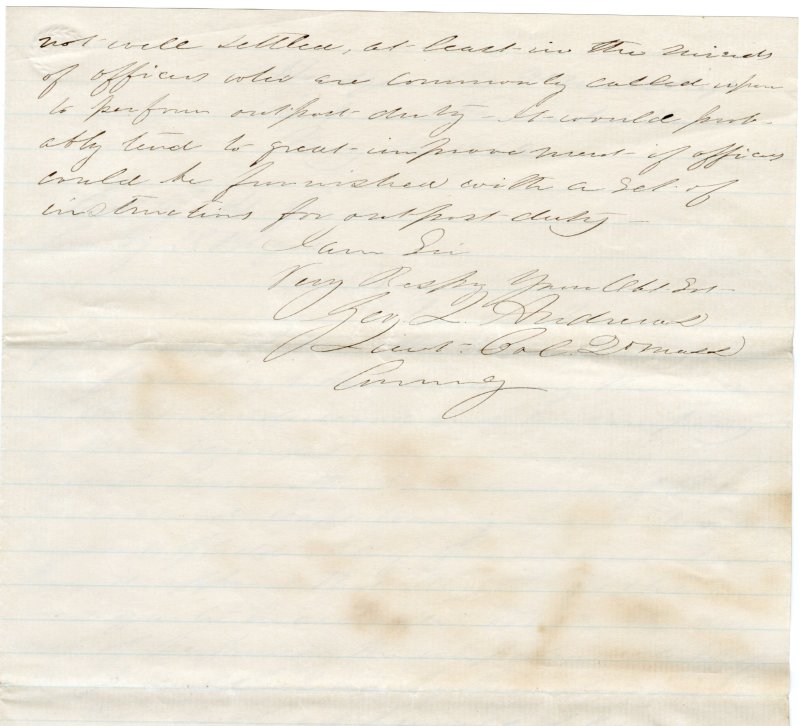 not well settled, at least in the minds
of officers who are commonly called upon
to perform outpost duty - It would prob-
ably tend to great improvement if officers
could be furnished with a set of
instructions for outpost duty -
I am Sir
Very Respy Your Obt Svt
Geo. L. Andrews
Lieut. Col. 2d Mass
Commdg